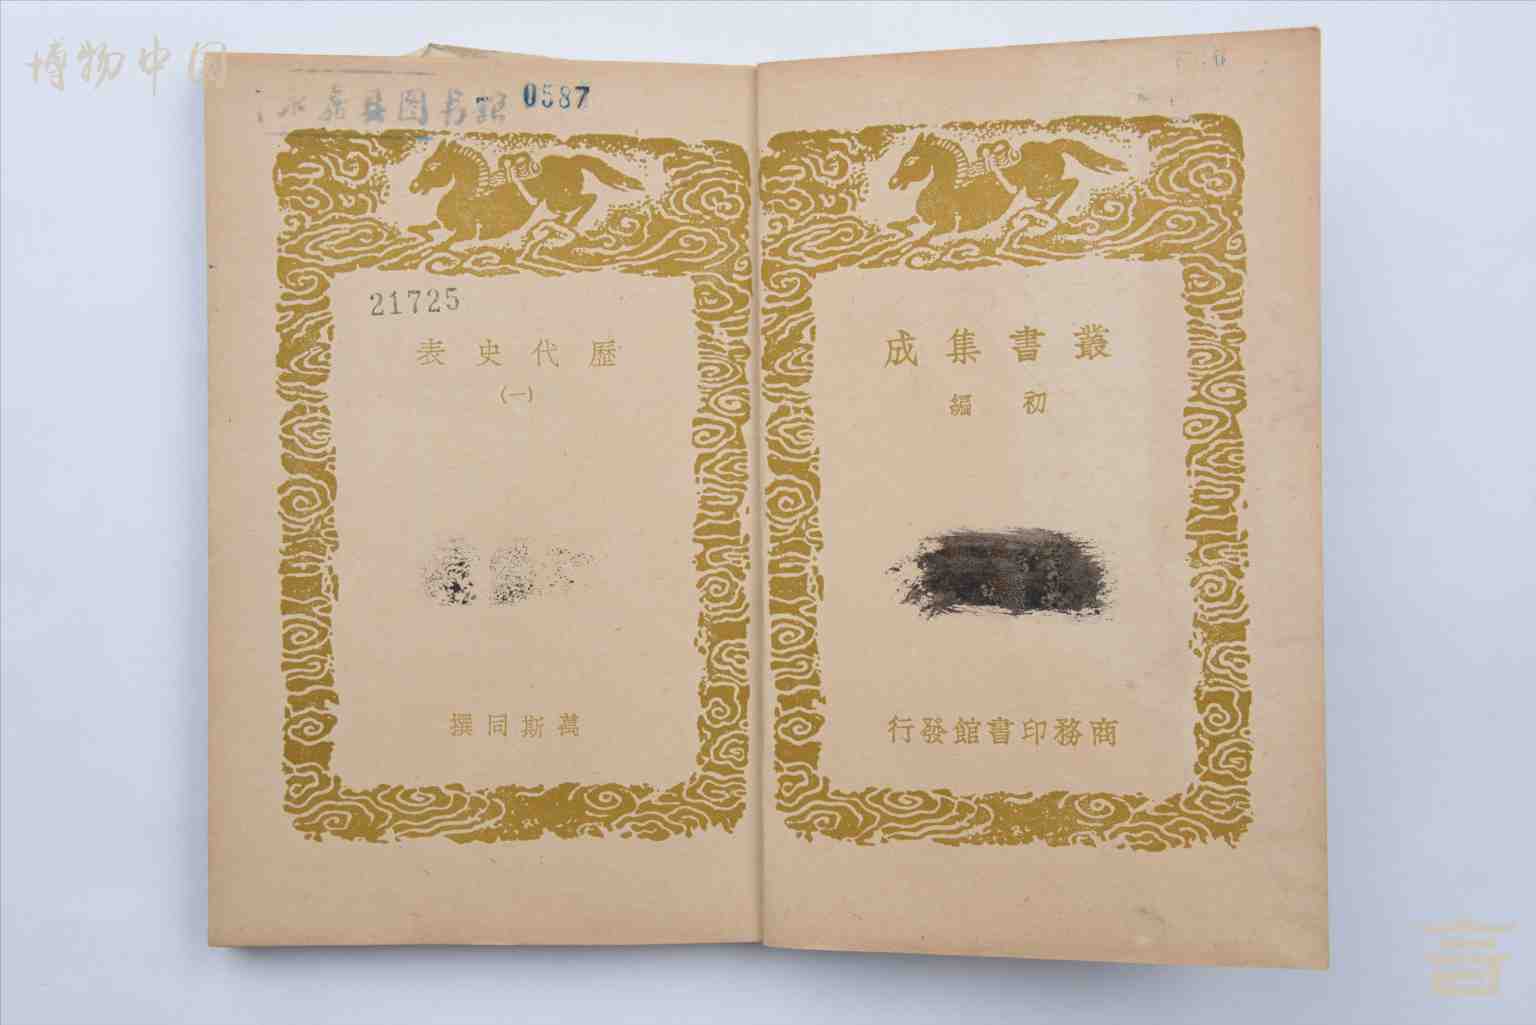 博物中国
0587
21725
叢書集成
初編
商務印書館發行
歷代史表
(一)
萬斯同撰